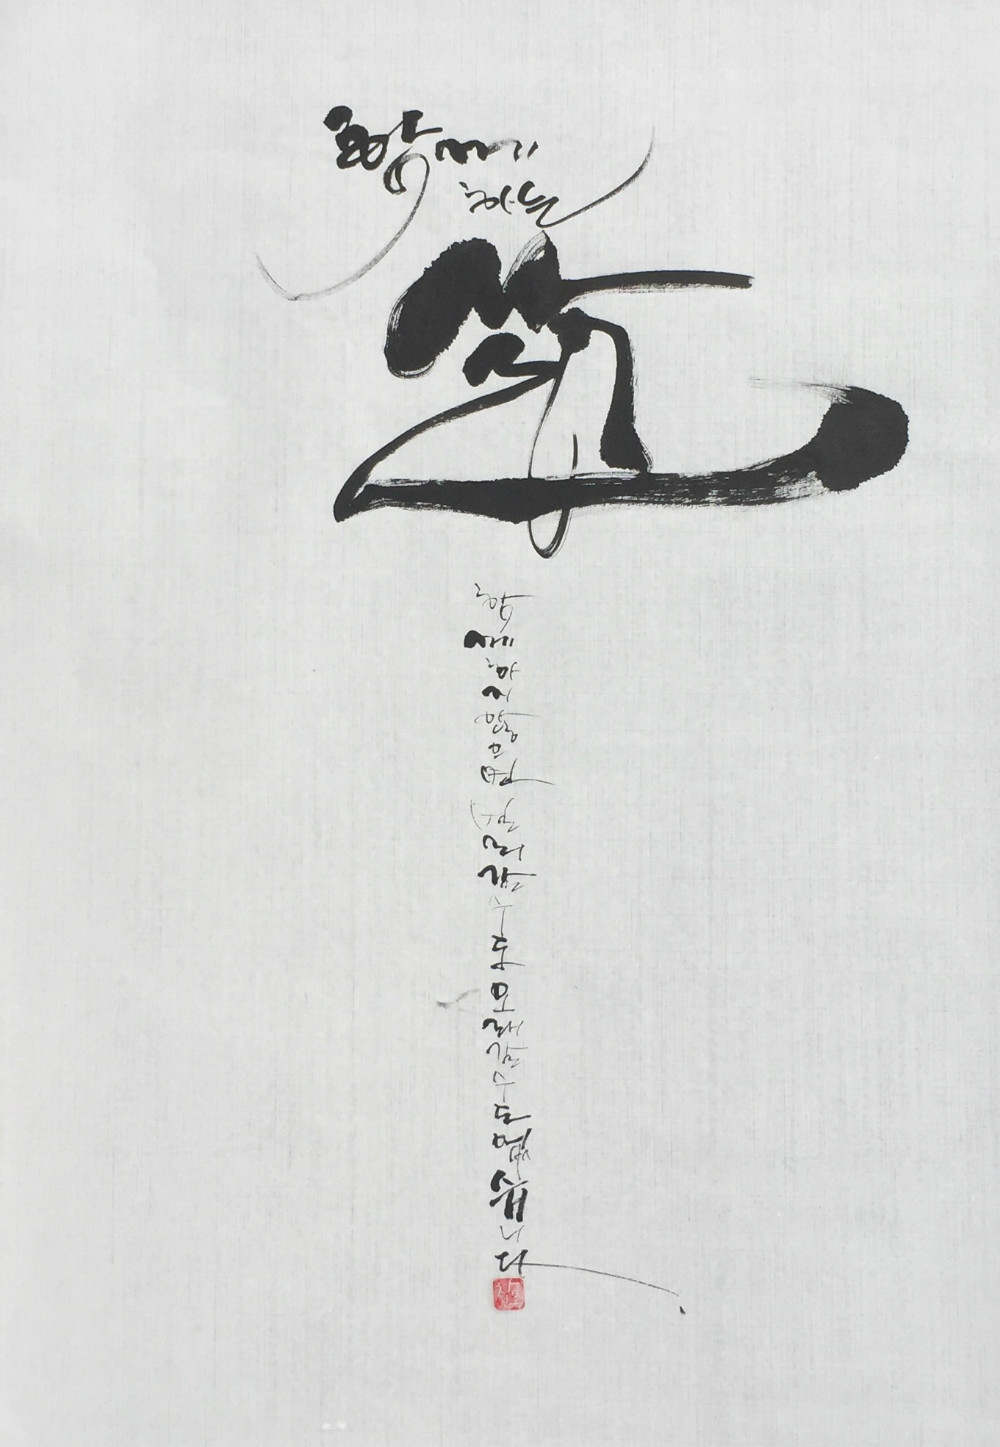 함께
하는
삶
함께하지않으면멀리갈수도오래갈수도없습니다